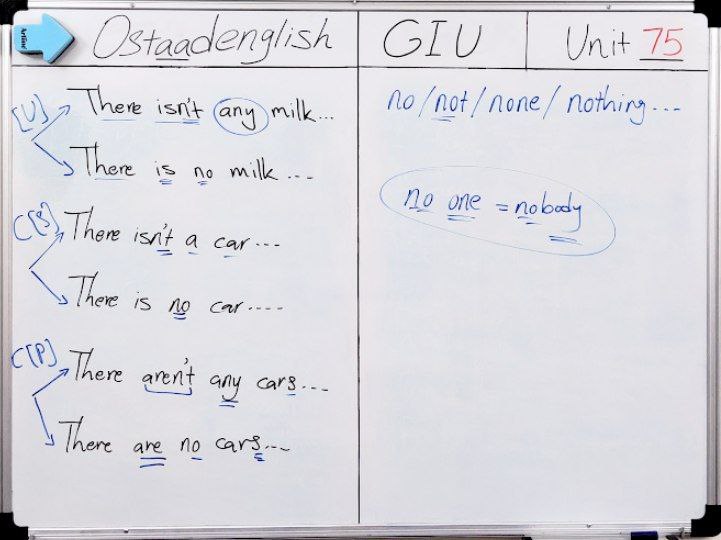 Ostaadenglish
GIU
Unit 75
[U]
There isn't any milk...
There is no milk ...
C[S]
There isn't a car...
There is no car....
C[P]
There aren't any cars...
There are no cars...
no / not / none / nothing...
no one = nobody